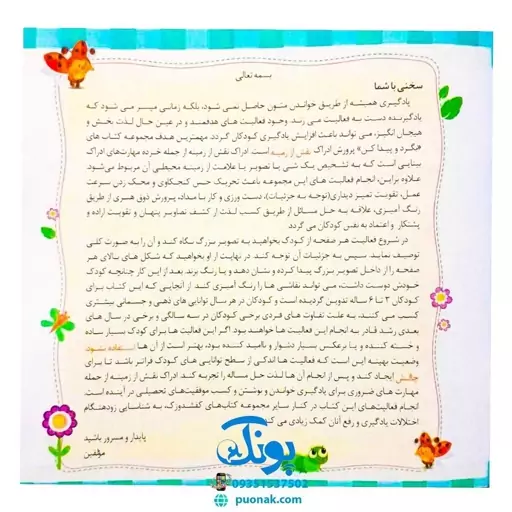 بسمه تعالی
سخنی با شما
یادگیری همیشه از طریق خواندن متون حاصل نمی شود، بلکه زمانی میسر می شود که
یادگیرنده دست به فعالیت می زند. وجود فعالیت های هدفمند و در عین حال لذت بخش و
هیجان انگیز، می تواند باعث افزایش یادگیری کودکان گردد. مهمترین هدف مجموعه کتاب های
«بگرد و پیدا کن» پرورش ادراک نقش از زمینه است. ادراک نقش از زمینه از جمله خرده مهارت‌های ادراک
بینایی است که به تشخیص یک شی یا تصویر یا علامت از زمینه محیطی آن مربوط می‌شود.
علاوه براین، انجام فعالیت های این مجموعه باعث تحریک حس کنجکاوی و محک زدن سرعت
عمل، تقویت تمیز دیداری(توجه به جزئیات)، دست ورزی و کار با مداد، پرورش ذوق هنری از طریق
رنگ آمیزی، علاقه به حل مسائل از طریق کسب لذت از کشف تصاویر پنهان و تقویت اراده و
پشتکار و اعتماد به نفس کودکان می گردد.
در شروع فعالیت هر صفحه از کودک بخواهید به تصویر بزرگ نگاه کند و آن را به صورت کلی
توصیف نماید. سپس به جزئیات آن توجه کند. در نهایت از او بخواهید که شکل های بالای هر
صفحه را از داخل تصویر بزرگ پیدا کرده و نشان دهد و یا رنگ بزند. بعد از این کار چنانچه کودک
خودش دوست داشت، می تواند نقاشی ها را رنگ آمیزی کند. از آنجایی که این کتاب برای
کودکان ۳ تا ۶ ساله تدوین گردیده است و کودکان در هر سال توانایی های ذهنی و جسمانی بیشتری
کسب می کنند، به علت تفاوت های فردی برخی کودکان در سه سالگی و برخی در سال های
بعدی رشد قادر به انجام این فعالیت ها خواهند بود. اگر این فعالیت ها برای کودک بسیار ساده
و خسته کننده و یا برعکس بسیار دشوار و ناامید کننده بود، بهتر است از آن ها استفاده نشود.
وضعیت بهینه این است که فعالیت ها اندکی از سطح توانایی های کودک فراتر باشد تا برای
چالش ایجاد کند و پس از انجام آن ها لذت حل مساله را تجربه کند. ادراک نقش از زمینه از جمله
مهارت های ضروری برای یادگیری خواندن و نوشتن و کسب موفقیت‌های تحصیلی در آینده است.
انجام فعالیت‌های این کتاب در کنار سایر مجموعه کتاب‌های کفشدوزک، به شناسایی زودهنگام
اختلالات یادگیری و رفع آنان کمک زیادی می کند
پایدار و مسرور باشید
مؤلفین
پونک
09351537502
puonak.com